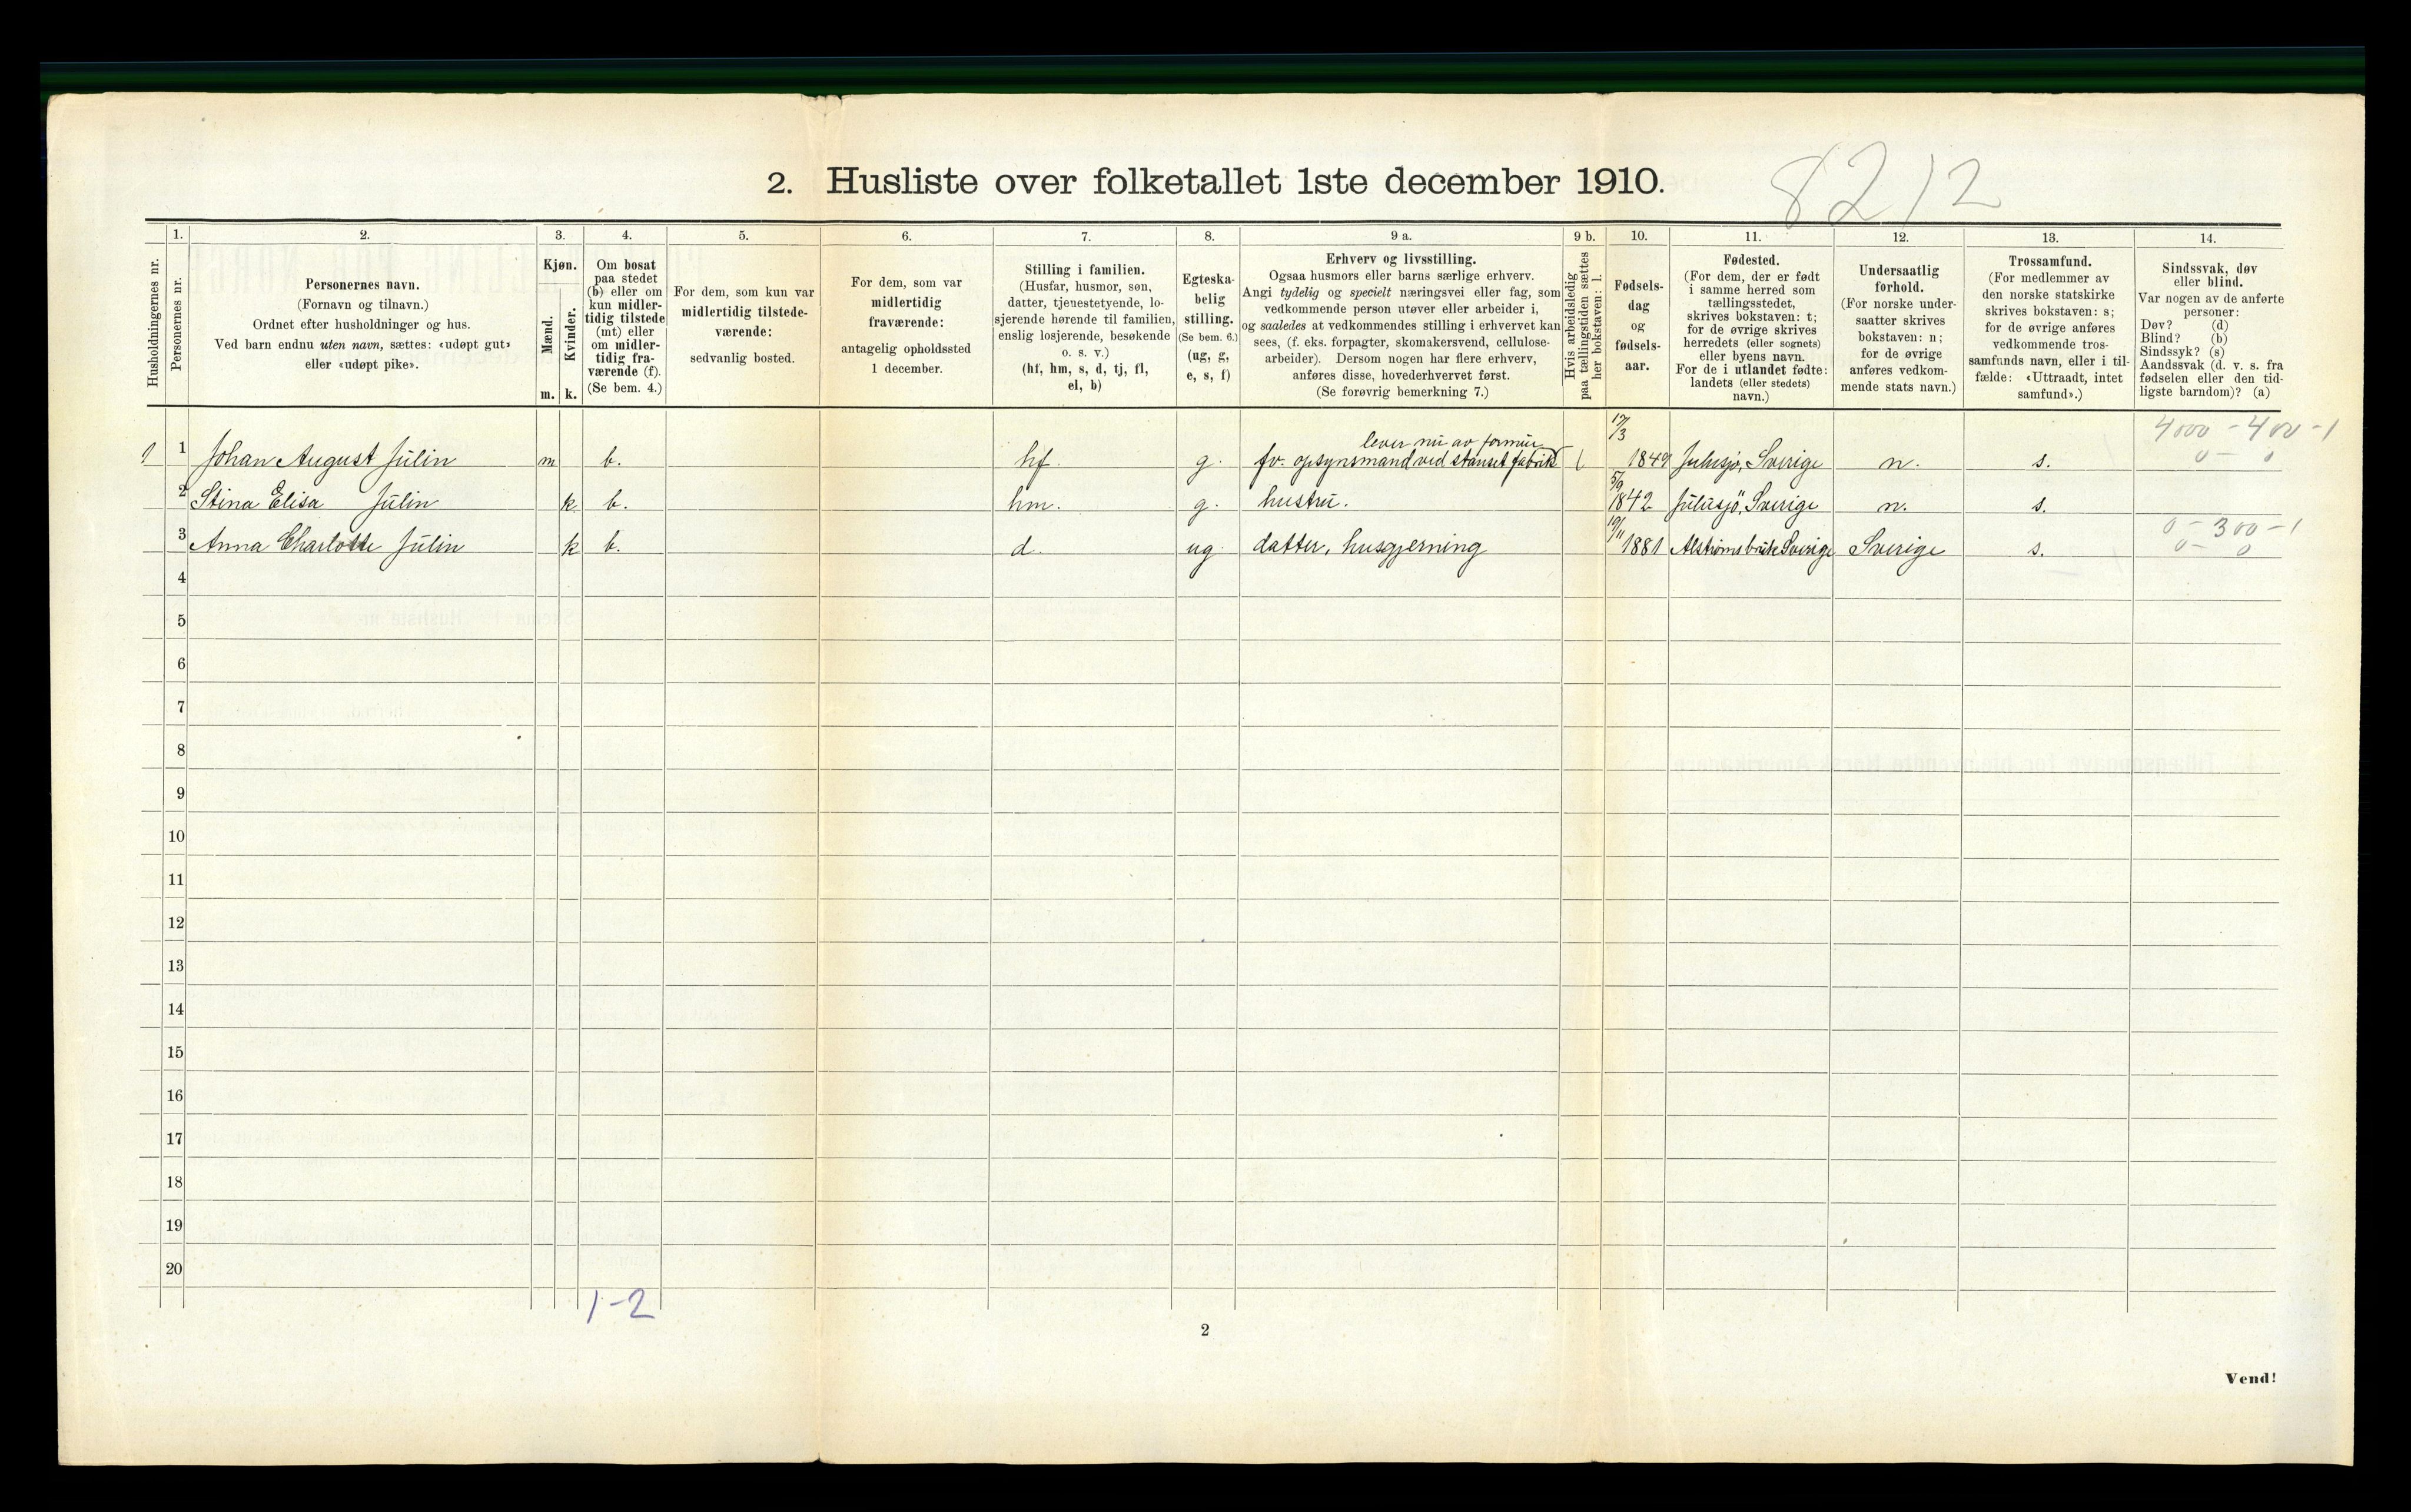 8212
2. Husliste over folketallet 1ste december 1910.
Husholdningernes nr.
1.
Personernes nr.
2.
Personernes navn.
(Fornavn og tilnavn.)
Ordnet efter husholdninger og hus.
Ved barn endnu uten navn, sættes: «udøpt gut»
eller «udøpt pike».
3.
Kjøn.
Mænd.
Kvinder.
m. k.
4.
Om bosat
paa stedet
(b) eller om
kun midler-
tidig tilstede
(mt) eller
om midler-
tidig fra-
værende (f).
(Se bem. 4.)
5.
For dem, som kun var
midlertidig tilstede-
værende:
sedvanlig bosted.
6.
For dem, som var
midlertidig
fraværende:
antagelig opholdssted
1 december.
7.
Stilling i familien.
(Husfar, husmor, søn,
datter, tjenestetyende, lo-
sjerende hørende til familien,
enslig losjerende, besøkende
o. s. v.)
(hf, hm, s, d, tj, fl,
el, b)
8.
Egteska-
belig
stilling.
(Se bem. 6.)
(ug, g,
e, s, f)
9 a.
Erhverv og livsstilling.
Ogsaa husmors eller barns særlige erhverv.
Angi tydelig og specielt næringsvei eller fag, som
vedkommende person utøver eller arbeider i,
og saaledes at vedkommendes stilling i erhvervet kan
sees, (f. eks. forpagter, skomakersvend, cellulose-
arbeider). Dersom nogen har flere erhverv,
anføres disse, hovederhvervet først.
(Se forøvrig bemerkning 7.)
9 b.
Hvis arbeidsledig
paa tællingstiden sættes
her bokstaven: l.
10.
Fødsels-
dag
og
fødsels-
aar.
11.
Fødested.
(For dem, der er født
i samme herred som
tællingsstedet,
skrives bokstaven: t;
for de øvrige skrives
herredets (eller sognets)
eller byens navn.
For de i utlandet fødte:
landets (eller stedets)
navn.)
12.
Undersaatlig
forhold.
(For norske under-
saatter skrives
bokstaven: n;
for de øvrige
anføres vedkom-
mende stats navn.)
13.
Trossamfund.
(For medlemmer av
den norske statskirke
skrives bokstaven: s;
for de øvrige anføres
vedkommende tros-
samfunds navn, eller i til-
fælde: «Uttraadt, intet
samfund».)
14.
Sindssvak, døv
eller blind.
Var nogen av de anførte
personer:
Døv? (d)
Blind? (b)
Sindssyk? (s)
Aandssvak (d. v. s. fra
fødselen eller den tid-
ligste barndom)? (a)
lever nu av formue 4000 - 400 - 1
1 1 Johan August Julin m b. hf. g. fv. opsynsmand ved fabrik 1849 Sverige n. s. 0 - 0
2 Stina Elisa Julin k b. hm. g. hustru. 5/9 1842 Julusjö, Sverige n. s.
0 - 300 - 1
3 Anna Charlotte Julin k b. d. ug. datter, husgjerning 19/11 1881 Alströmsbruk Sverige Sverige s. 0 - 0
4
5
6
7
8
9
10
11
12
13
14
15
16
17
18
19
20
1-2
2
Vend!